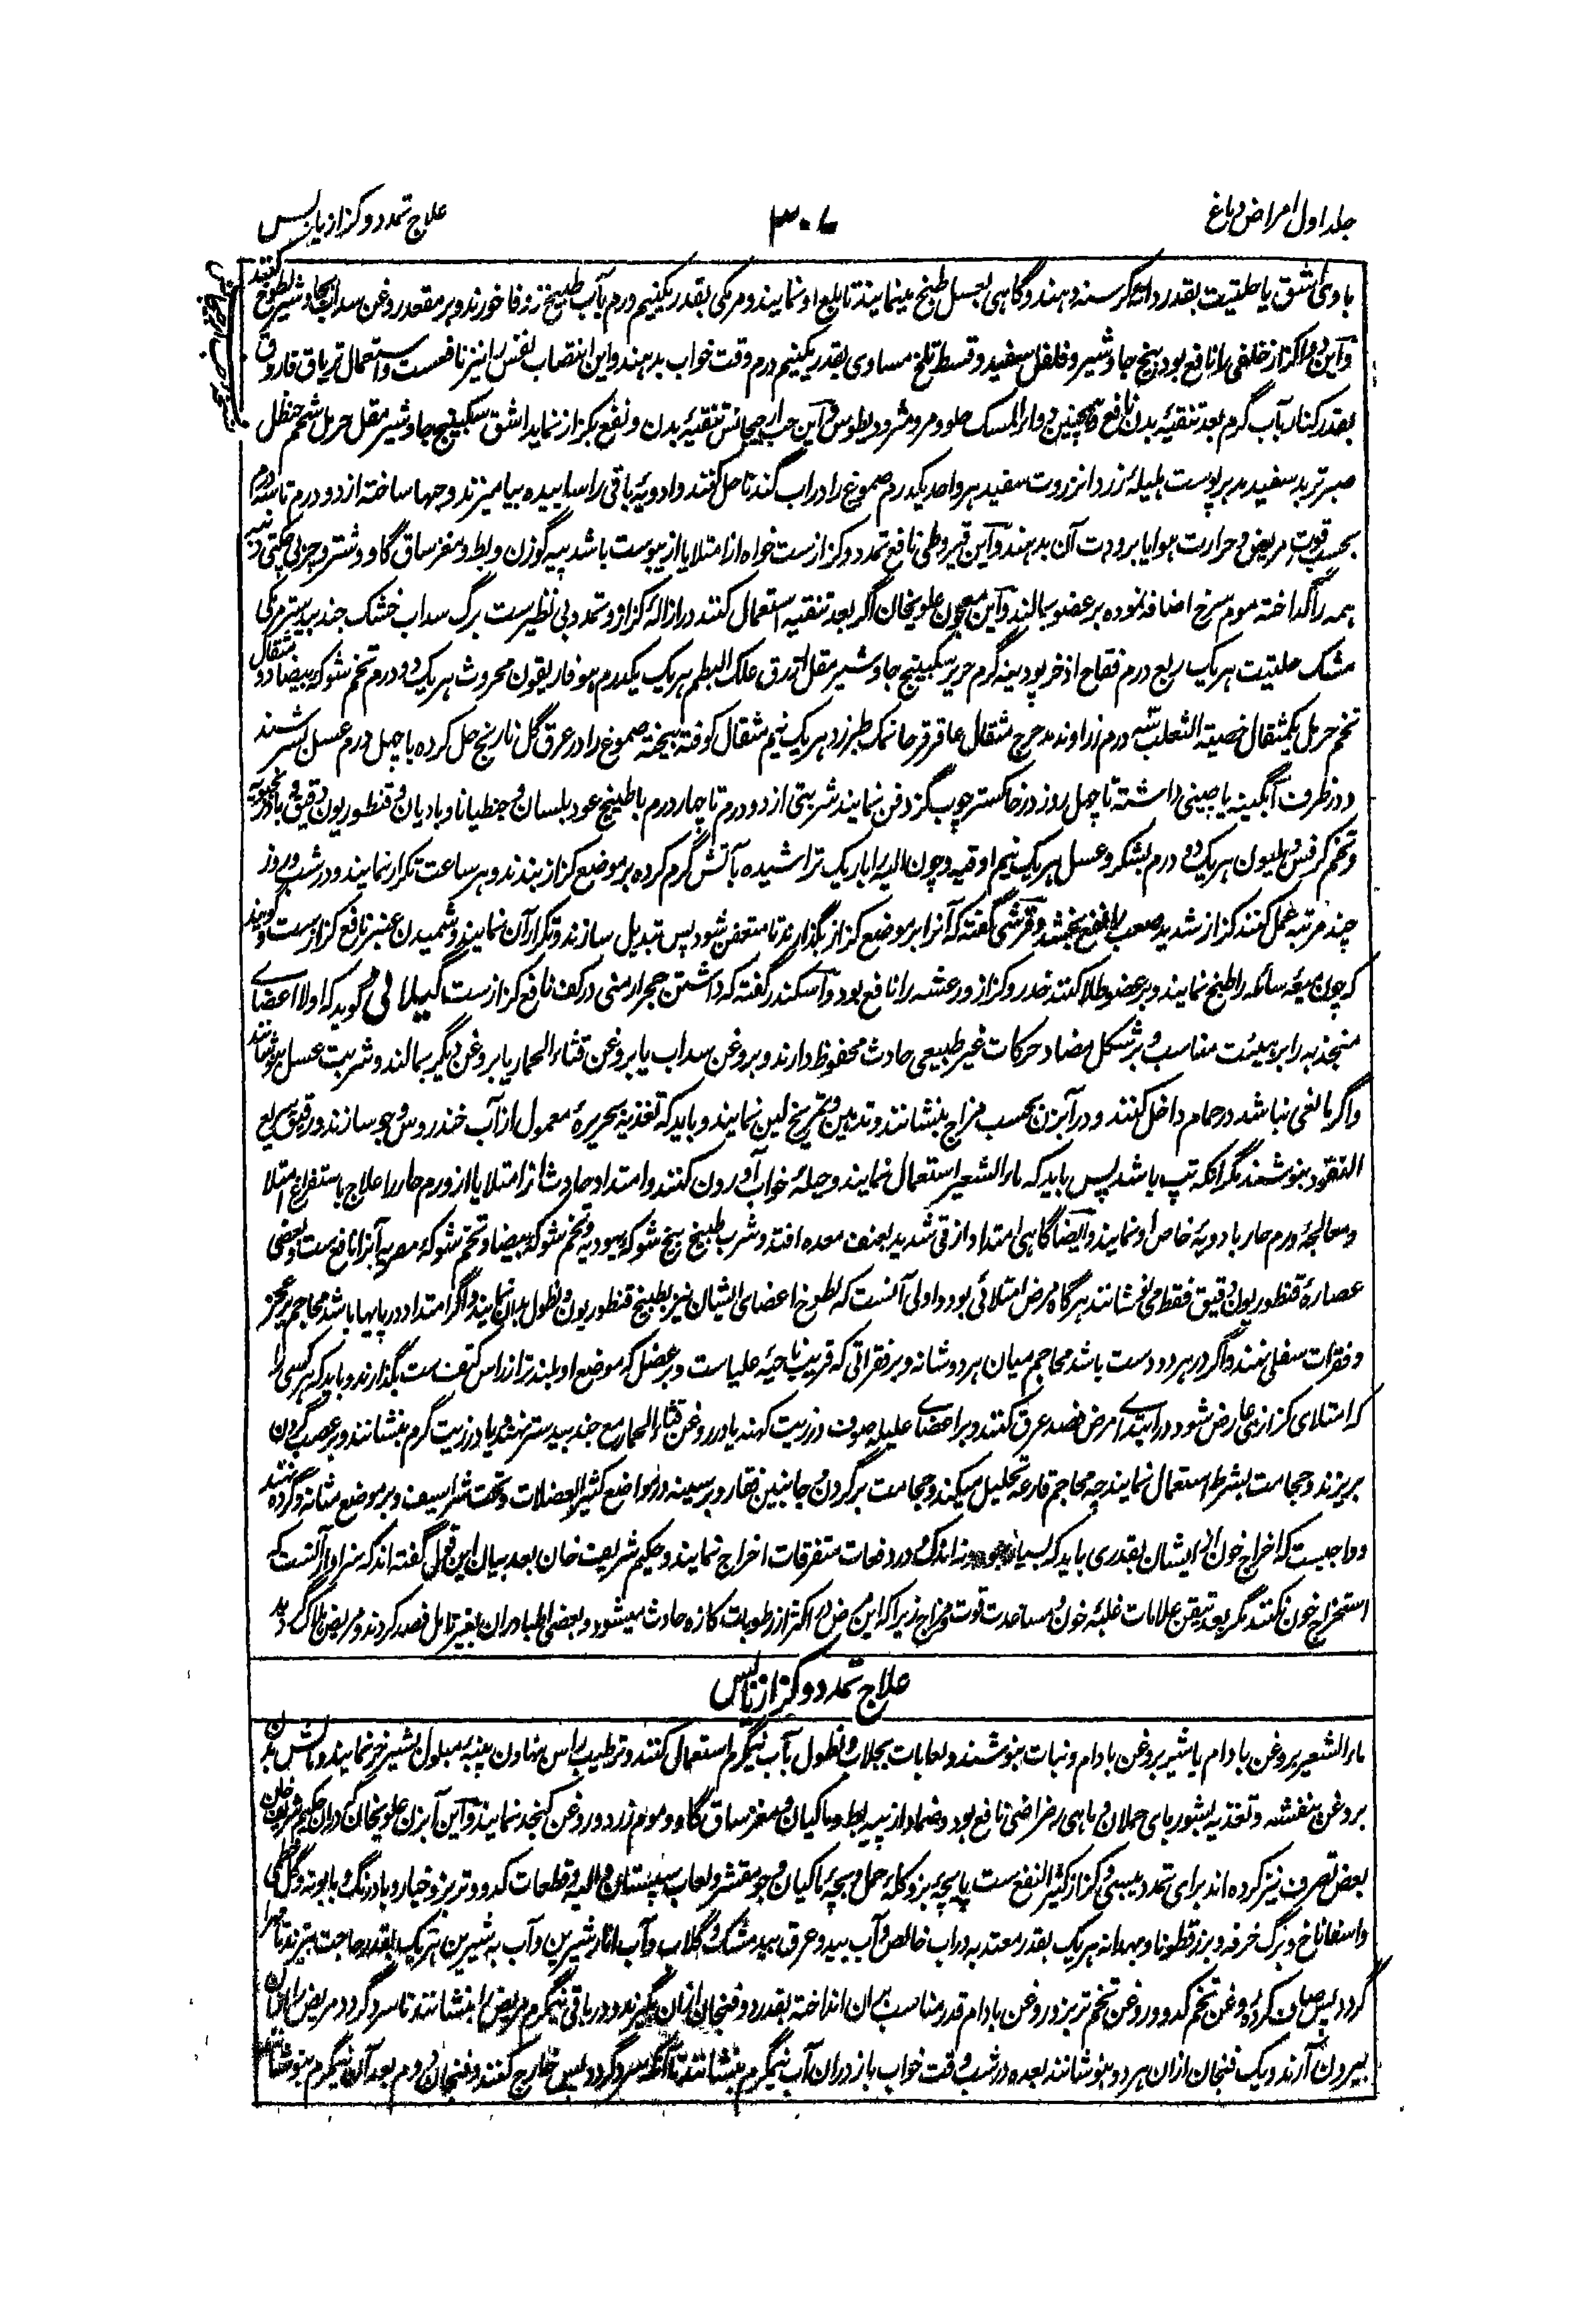 جلد اول امراض دماغ
۳۰۷
علاج تمدد و کزاز یابس
باوی اشق یا حلتیت بقدر دانه کرسنه دهند و گاهی بعسل طبخ مینمایند تا بلع او نمایند و مرمکی بقدر یکنیم درم بآب طبیخ زوفا خورند و بر مقعد روغن سداب جاوشیر لطوخ کنند
و این دوا کزاز خلفی را نافع بود بیخ جاوشیر و فلفل سفید و قسط تلخ مساوی بقدر یکنیم درم وقت خواب بدهند و این انتصاب نفس را نیز نافعست و استعمال تریاق فاروق
بقدر کنار بآب گرم بعد تنقیۀ بدن نافع و همچنین دواء المسک حلو و مر و مثرودیطوس و این حب ایارجات تنقیۀ بدن و نفع بکزاز نماید اشق سکبینج جاوشیر مقل حرمل شحم حنظل
صبر تربد سفید مدبر پوست هلیلۀ زرد انزروت سفید هر واحد یکدرم صموغ را در آب کنند تا حل کنند و ادویۀ باقی را ساییده بیامیزند و حبها ساخته از دو درم تا سه درم
بحسب قوت مریض و حرارت هوا یا برودت آن بدهند و این قیروطی نافع تمدد و کزازست خواه از امتلا یا از یبوست باشد پیه گوزن و بط و مغز ساق گاو و شتر و چربی
همه را گداخته موم سرخ اضافه نموده بر عضو بمالند و این معجون علویخان اگر بعد تنقیه استعمال کنند در ازالۀ کزاز و تمدد بی نظیرست برگ سداب خشک جند بیدستر مرمکی
مشک حلتیت هر یک ربع درم فقاح اذخر پودینه کرم حریر سکبینج جاوشیر مقل ازرق علک البطم هر یک یکدرم هوفاریقون محروث هر یک دو درم تخم شوکه بیضا دو مثقال
تخم حرمل یکمثقال خصیة الثعلب سه درم زراوند مدحرج مثقال عاقرقرحا نمک طبرزد هر یک نیم مثقال کوفته بیخته صموغ را در عرق گل نارنج حل کرده با چهل درم عسل بسرشند
و در ظرف آبگینه یا چینی داشته تا چهل روز در خاکستر چوب گز دفن نمایند شربتی از دو درم تا چهار درم با طبیخ عود بلسان و جنطیانا و بادیان و قنطوریون دقیق و بادرنجبویه
و تخم کرفس و هلیون هر یک دو درم بشکر و عسل هر یک نیم اوقیه و چون الیه را باریک تراشیده بآتش گرم کرده بر موضع کزاز بندند و هر ساعت تکرار نمایند و در شب و روز
چند مرتبه عمل کنند کزاز شدید صعب را نفع بخشد و قرشی گفته که آنرا بر موضع کزاز بگذارند تا متعفن شود پس تبدیل سازند و تکرار آن نمایند و شمیدن عنبر نافع کزازست و گویند
که چون میعه سائله را طبخ نمایند و بر عضو طلا کنند خدر و کزاز و رعشه را نافع بود و اسکندر گفته که داشتن حجر ارمنی در کف نافع کزازست گیلانی می گوید که اولا اعضای
منجذبه را بر هیئت مناسب و بر شکل مضاد حرکات غیر طبیعی حادث محفوظ دارند و بروغن سداب یا بروغن قثاء الحمار یا بروغن دیگر بمالند و شربت عسل بنوشانند
و اگر مانعی نباشد در حمام داخل کنند و در آبزن بحسب مزاج بنشانند و تدهین و تمریخ لین نمایند و باید که تغذیه بحریرۀ معمول از آب خندروس و جو سازند و رقیق سریع
النفوذ بنوشند مگر آنکه تپ باشد پس باید که ماء الشعیر استعمال نمایند و حیلۀ خواب آوردن کنند و امتداد حادث از امتلا یا از ورم حار را علاج باستفراغ امتلا
و معالجۀ ورم حار بادویۀ خاص او نمایند و ایضا گاهی امتداد از قی شدید بعنف معده افتد و شرب طبیخ بیخ شوکه یهودیه و تخم شوکه بیضا و تخم شوکۀ مصریه آنرا نافع ست و بعضی
عصارۀ قنطوریون دقیق فقط می نوشانند هرگاه مرض امتلائی بود و اولی آنست که لطوخ اعضای ایشان نیز بطبیخ قنطوریون و نطول بدان نمایند و اگر امتداد در پایها باشد محاجم بر عجز
و فقرات سفلی نهند و اگر در هر دو دست باشد محاجم میان هر دو شانه و بر فقراتی که قریب ناحیۀ علیاست و بر عضل که موضع او بلندتر از راس کتف ست بگذارند و باید که هر کسی را
که امتلای کزازی عارض شود در ابتدای مرض فصد عرق کنند و بر اعضای علیله صوف در زیت کهنه یا در روغن قثاء الحمار مع جند بیدستر نهند و یا در زیت گرم بنشانند و بر عصب گردن
بریزند و حجامت بشرط استعمال نمایند چه محاجم فارغه تحلیل میکند و حجامت بر گردن و جانبین فقار و بر سینه و در مواضع کثیر العضلات و تحت شراسیف و بر موضع مثانه و گرده نهند
و واجبست که اخراج خون از ایشان بقدری باید که بسیار نبود و نه اندک و در دفعات متفرقات اخراج نمایند و حکیم شریف خان بعد بیان این قول گفته اند که سزاوار آنست که
استخراج خون نکنند مگر بعد تیقن علامات غلبۀ خون و مساعدت قوت و مزاج زیرا که این مرض اکثر از رطوبات کازه حادث میشود و بعضی اطبا در آن بغیر تامل فصد کردند و مریض هلاک گردید
علاج تمدد و کزاز یابس
ماء الشعیر بروغن بادام یا شیر بروغن بادام و نبات بنوشند و لعابات بجلاب و نطول بآب نیمگرم استعمال کنند و ترطیب راس بنهادن پنبه مبلول بشیر خر نمایند و مالش بدن
بروغن بنفشه و تغذیه بشوربای حملان و ماهی رضراضی نافع بود و ضماد از پیه بط و ماکیان و مغز ساق گاو و موم زرد و روغن کنجد نمایند و این آبزن علویخان که در آن حکیم شریف خان
بعض تصرف نیز کرده اند برای تمدد یبسی و کزاز کثیر النفع ست پاچۀ بز و کلۀ حمل و بچۀ ماکیان و جو مقشر و لعاب سپستان و الیه و قطعات کدو و تربز و خیار و بادرنگ و بابونه و گل خطمی
و اسفاناخ و برگ خرفه و بزرقطونا و بهدانه هر یک بقدر معتد به در آب خالص و آب بید و عرق بیدمشک و گلاب و آب انار شیرین و آب به شیرین هر یک بقدر حاجت بپزند تا مهرا
گردد پس صاف کرده روغن تخم کدو و روغن تخم تربز و روغن بادام قدر مناسب بران انداخته بقدر دو فنجان ازان بگیرند و در باقی نیمگرم مریض را بنشانند تا سرد گردد مریض را ازان
بیرون آرند و یک فنجان ازان هر دو بنوشانند بعده در شب وقت خواب باز دران آب نیمگرم بنشانند تا آنکه سرد گردد پس خارج کنند و فنجان دوم بعد آن نیمگرم بنوشانند